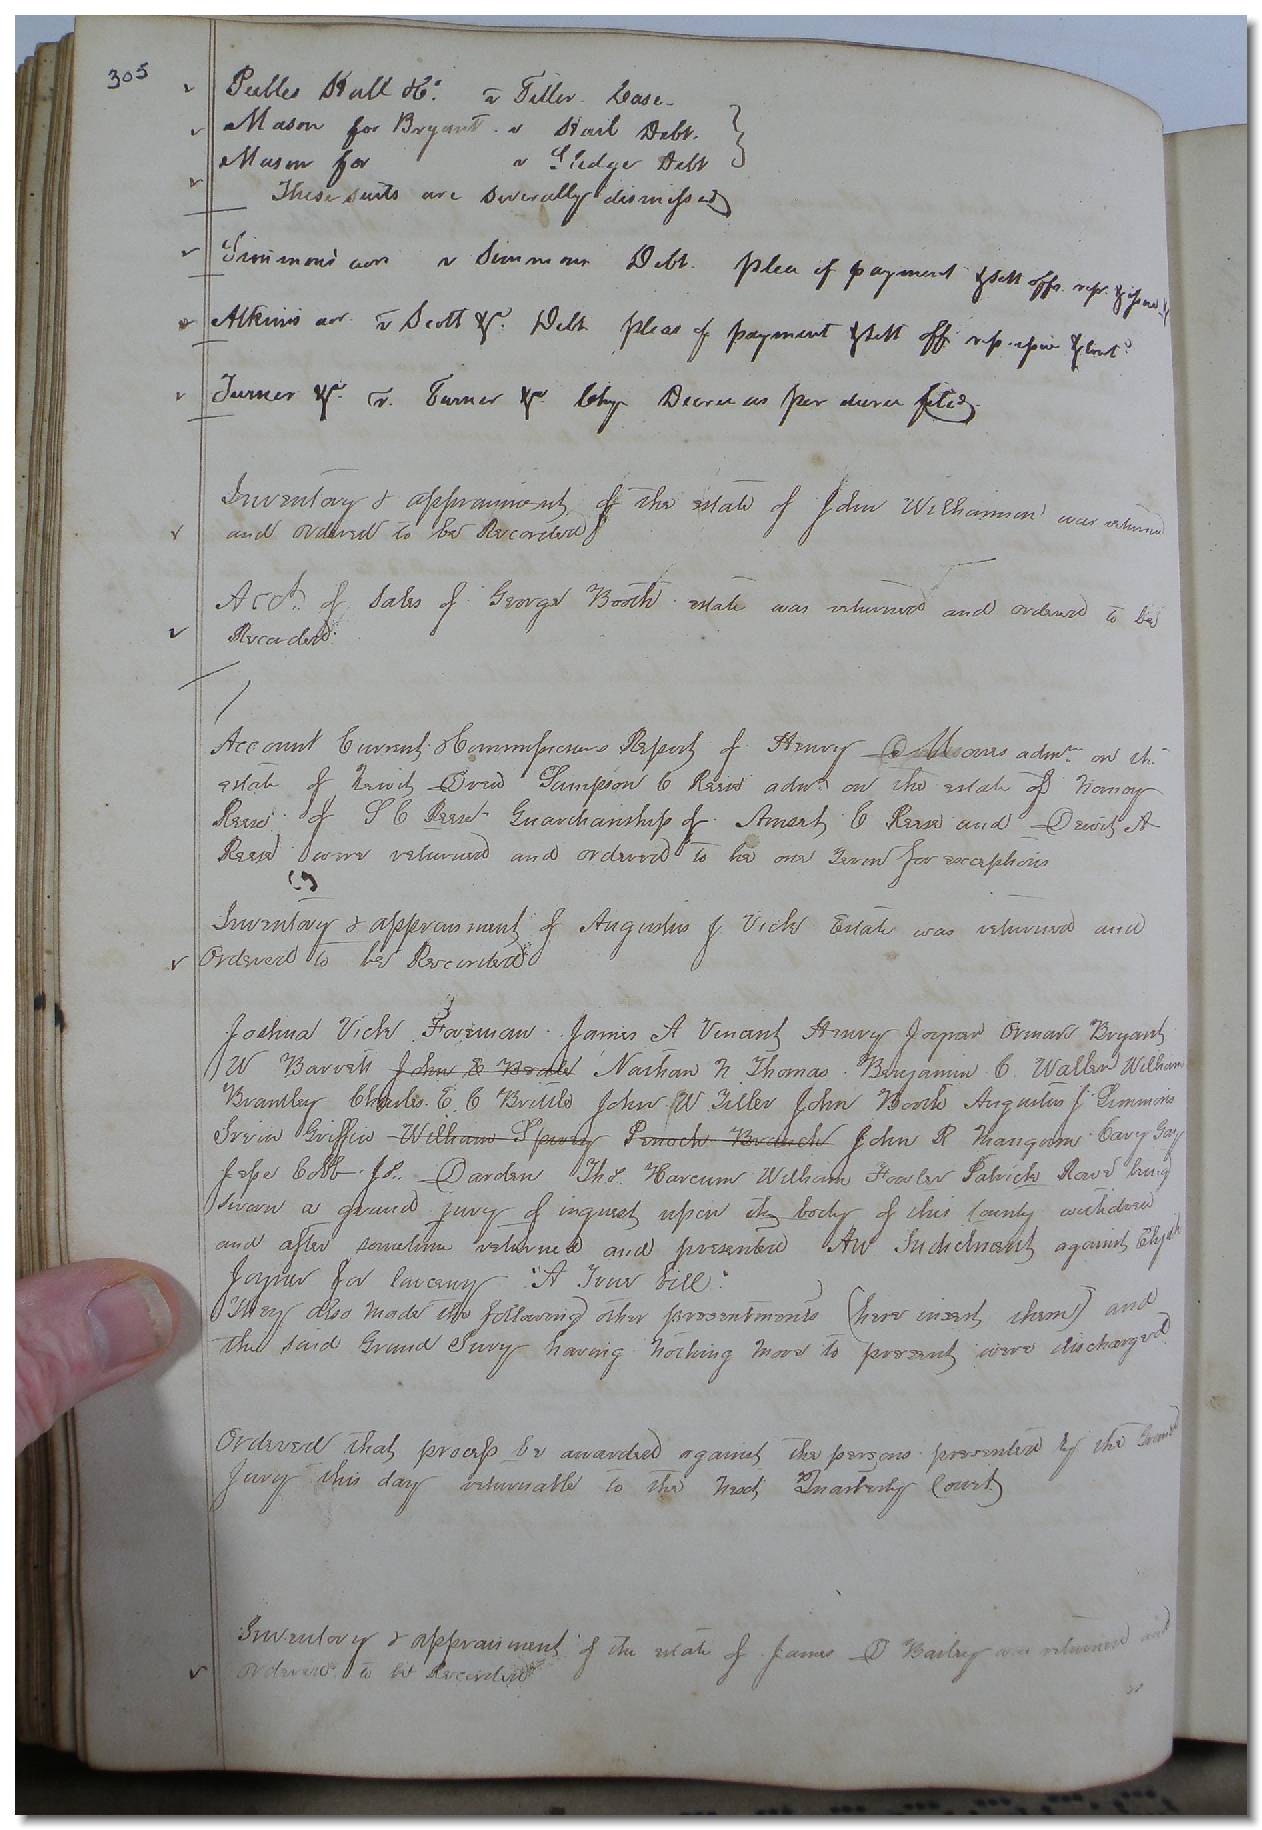 305
Peebles Hall &Co. v Tiller Case
Mason for Bryant v Hail Debt.
Mason for v Sledge Debt
These suits are severally dismissed
Simmons v Simmons Debt. plea of payment & sett offs rep.
Atkins v Scott &c. Debt pleas of payment & sett off rep. & cont.d
Turner &c. v. Turner &c. Chy Decree as per decree filed
Inventory & appraisment of the estate of John Williamson was returned
and ordered to be Recorded
Acct. of Sales of George Booth estate was returned and ordered to be
Recorded
Account Current & Commissioners Report of Henry admr. on the
estate of Drew Sampson C Reese admr. on the estate of
Reese of S C Reese Guardianship of C Reese and Dewit A
Reese were returned and ordered to be one Term for exceptions
Inventory & appraisment of Augustus J Vick Estate was returned and
Ordered to be Recorded
Joshua Vick Foreman James A Vincent Henry Joyner Bryant
W Barrett John B Beale Nathan N Thomas Benjamin C. Waller William
Brantley Charles E. C Brittle John W Tiller John Booth Augustus J Simmons
Irvin Griffin William Spivey Branch John R Mangum Cary Gay
Jesse Cobb Js. Darden Ths. Harcum William Fowler Patrick Rowe being
Sworn a grand jury of inquest upon the body of this County withdrew
and after sometime returned and presented An Indictment against
Joyner for larceny "A True bill"
They also made the following other presentments (here insert them) and
the said Grand Jury having nothing more to present were discharged
Ordered that process be awarded against the persons presented by the Grand
Jury this day returnable to the next Quarterly Court
Inventory & appraisment of the estate of James D Bailey was returned and
ordered to be Recorded